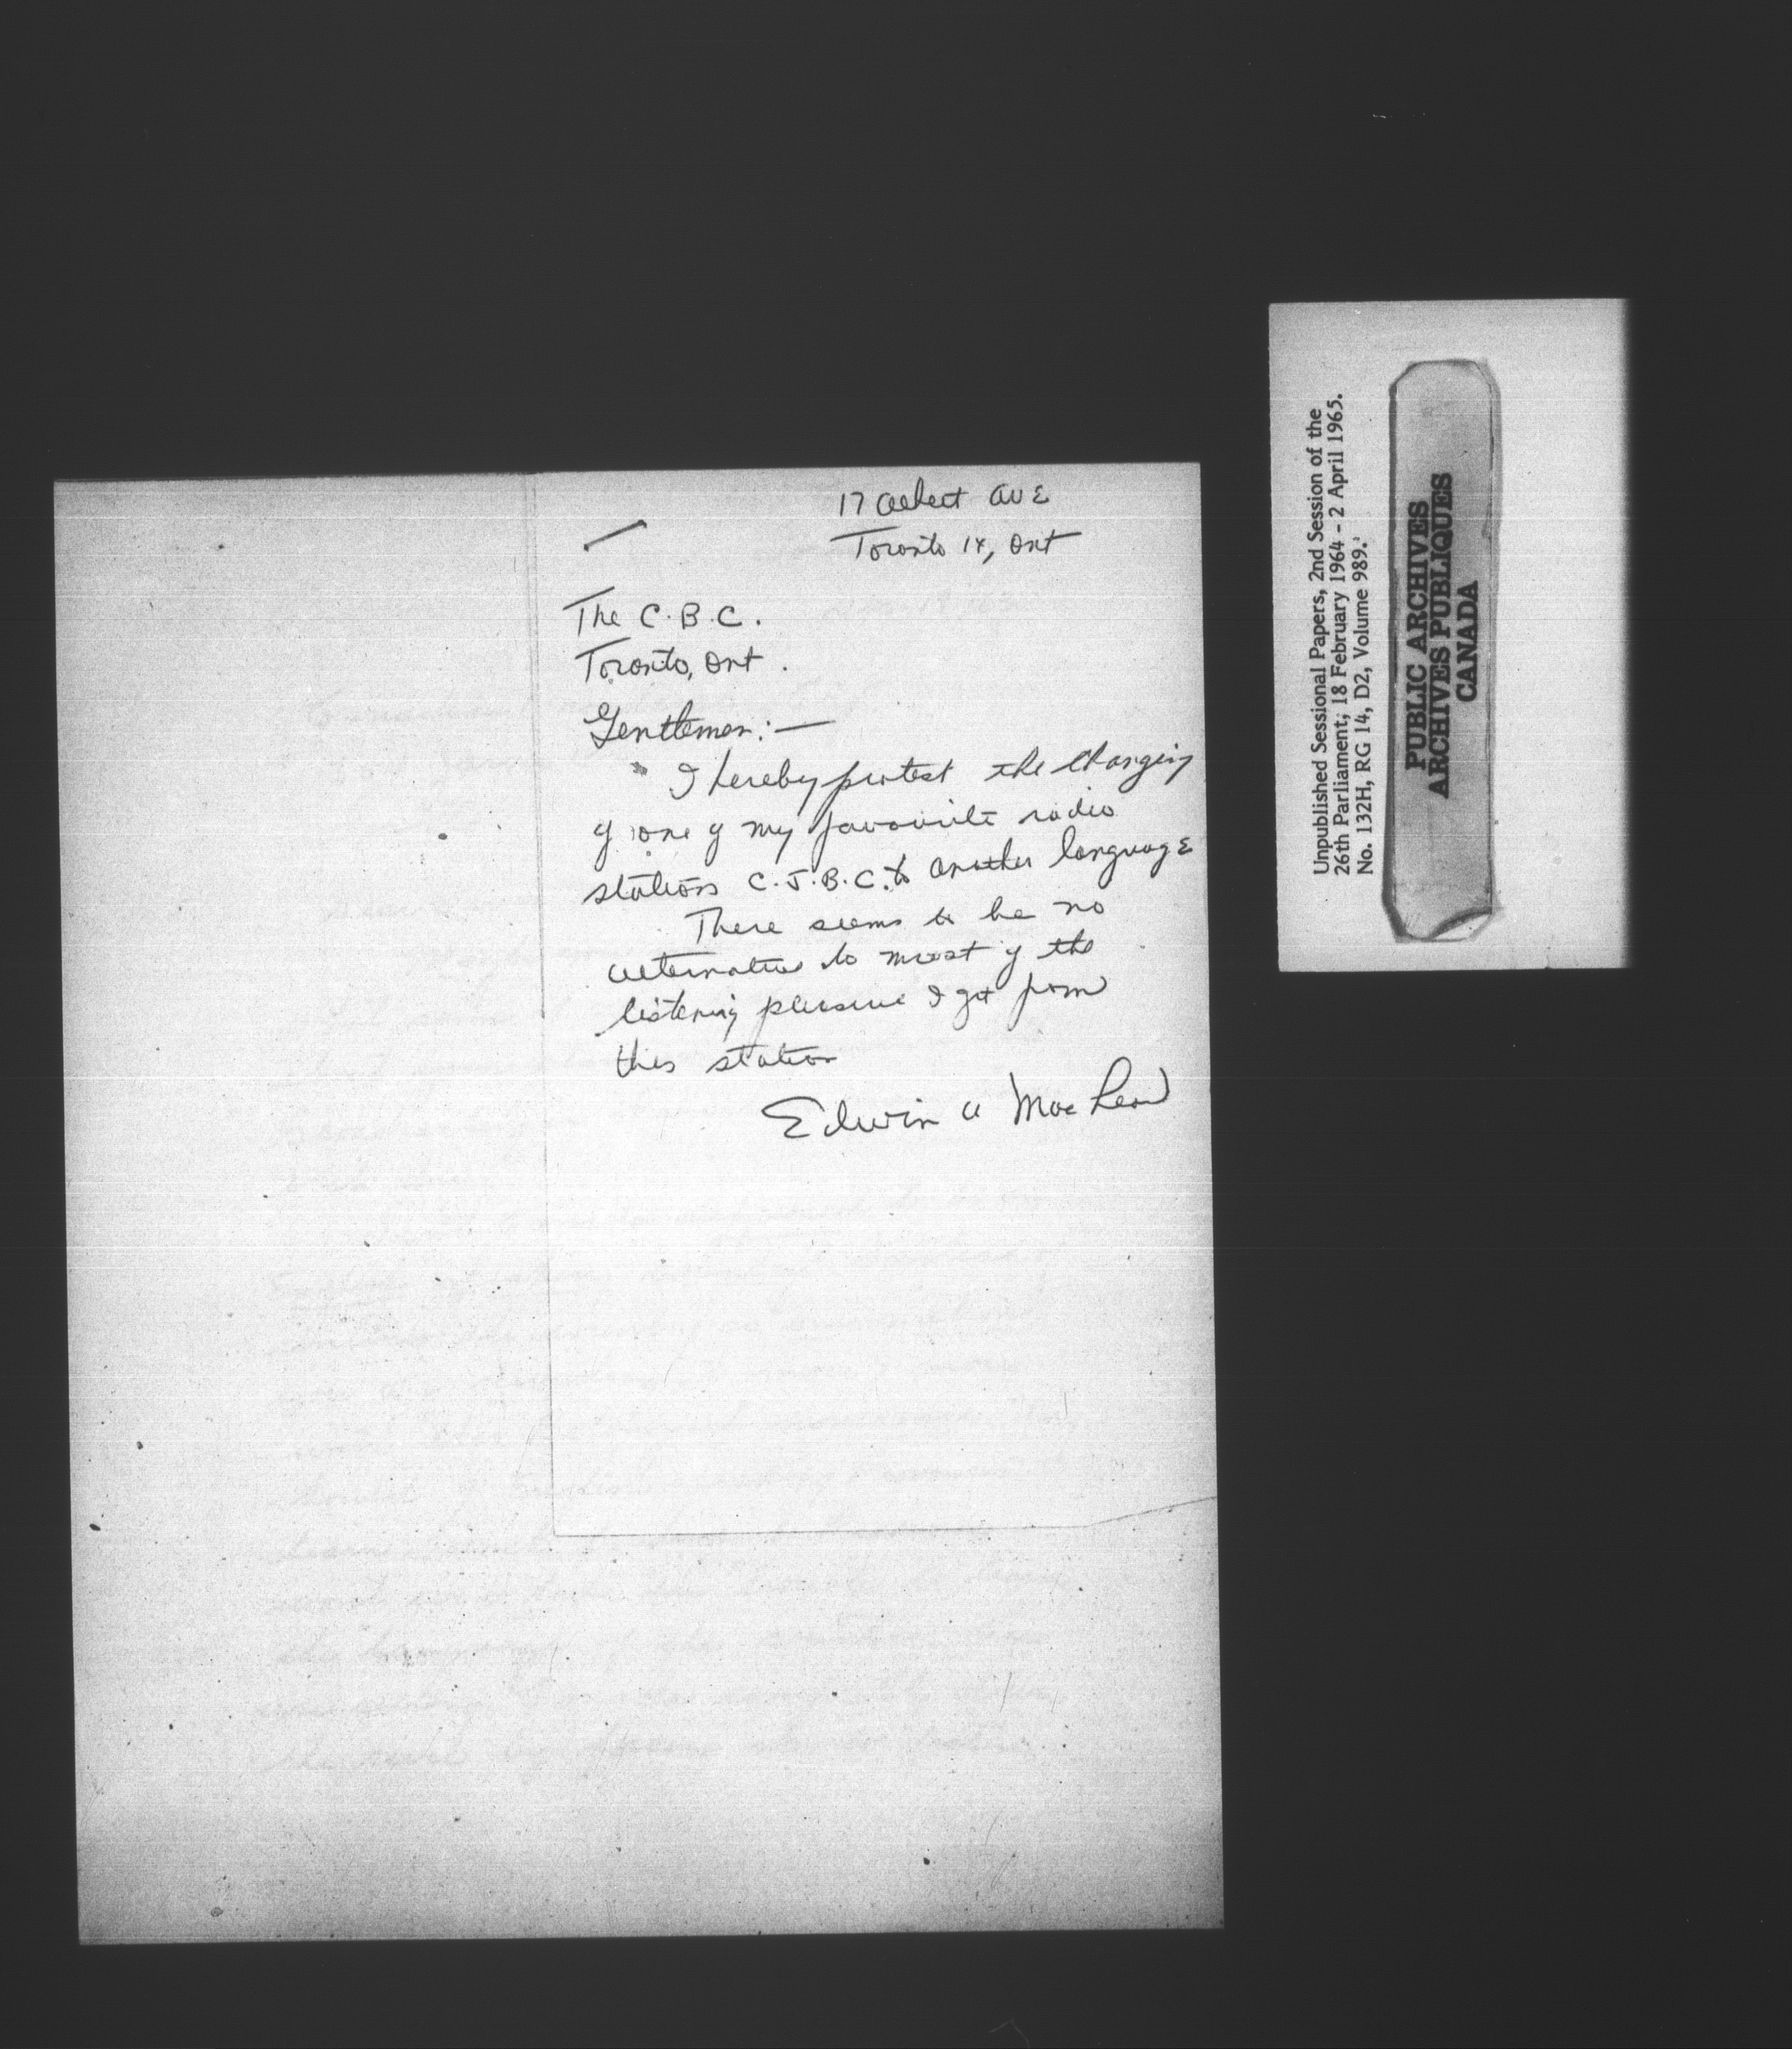 17 Albert Ave
Toronto 14, Ont
The C.B.C.
Toronto, Ont.
Gentlemen:—
I hereby protest the changing
of one of my favourite radio
stations C.J.B.C. to another language
There seems to be no
alternative to most of the
listening pleasure I get from
this station
Edwin A MacLeod
Unpublished Sessional Papers, 2nd Session of the
26th Parliament; 18 February 1964 - 2 April 1965.
No. 132H, RG 14, D2, Volume 989.
PUBLIC ARCHIVES
ARCHIVES PUBLIQUES
CANADA